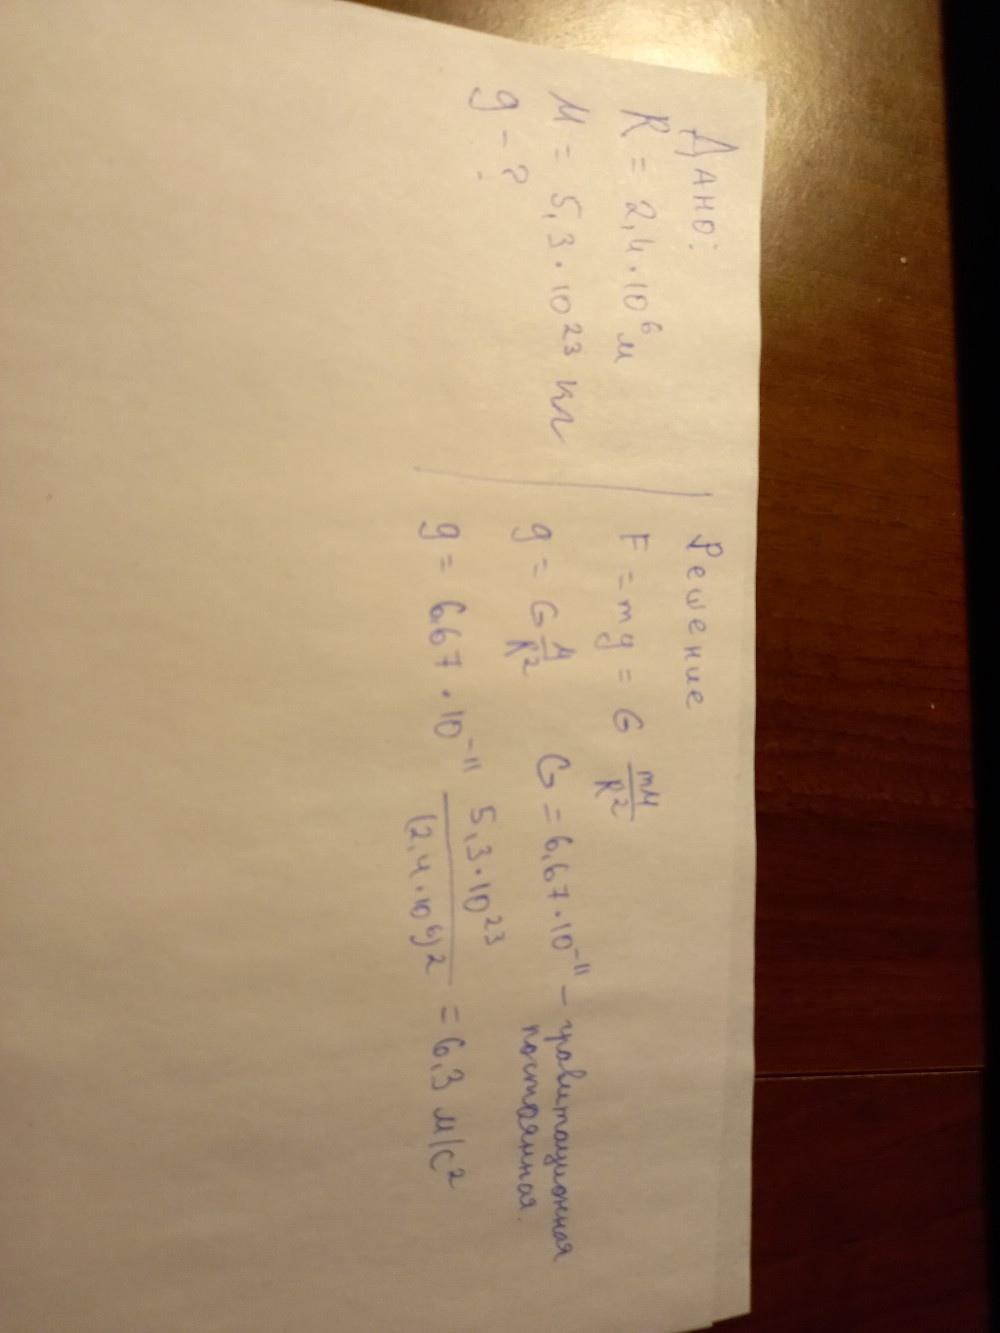 Дано:
R = 2,4·10⁶ м
M = 5,3·10²³ кг
g - ?
Решение
F = mg = G mM/R²
g = G M/R² G = 6,67·10⁻¹¹ – гравитационная
постоянная.
g = 6,67·10⁻¹¹ 5,3·10²³/(2,4·10⁶)2 = 6,3 м/с²